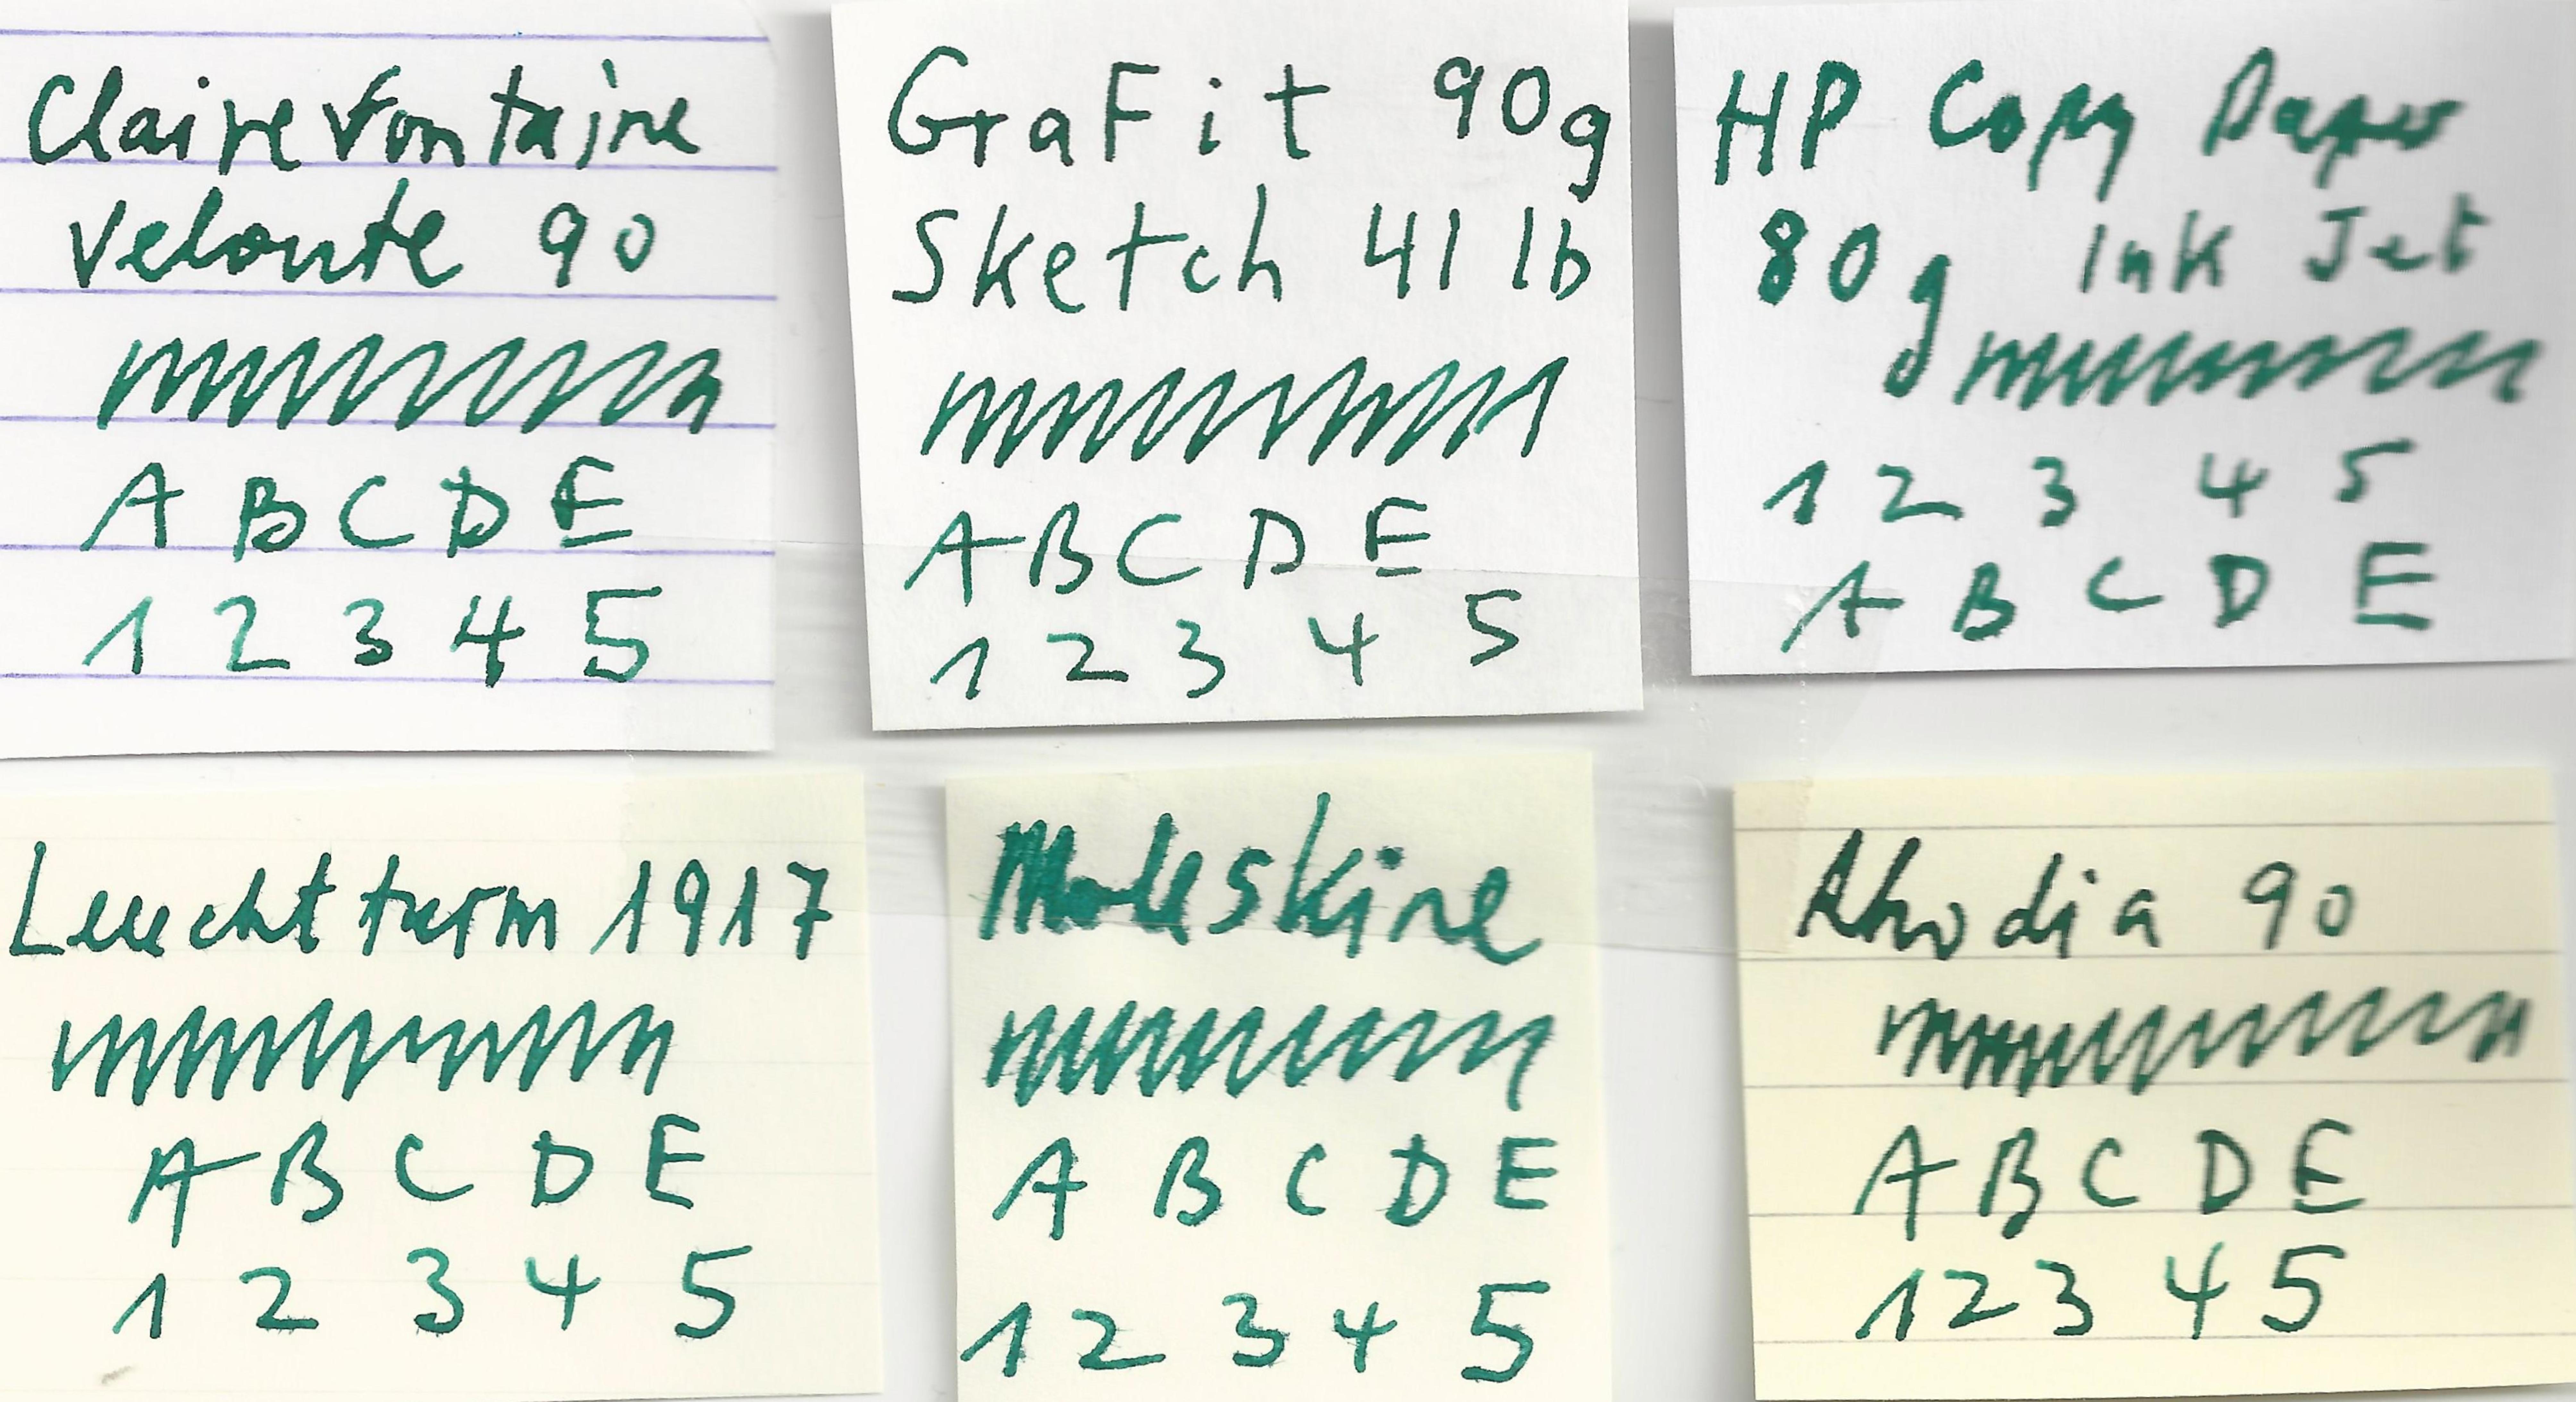 Clairefontaine
Veloute 90
A B C D E
1 2 3 4 5
GraFit 90g
Sketch 41 lb
A B C D E
1 2 3 4 5
HP Copy Paper
80g Ink Jet
1 2 3 4 5
A B C D E
Leuchtturm 1917
A B C D E
1 2 3 4 5
Moleskine
A B C D E
1 2 3 4 5
Rhodia 90
A B C D E
1 2 3 4 5